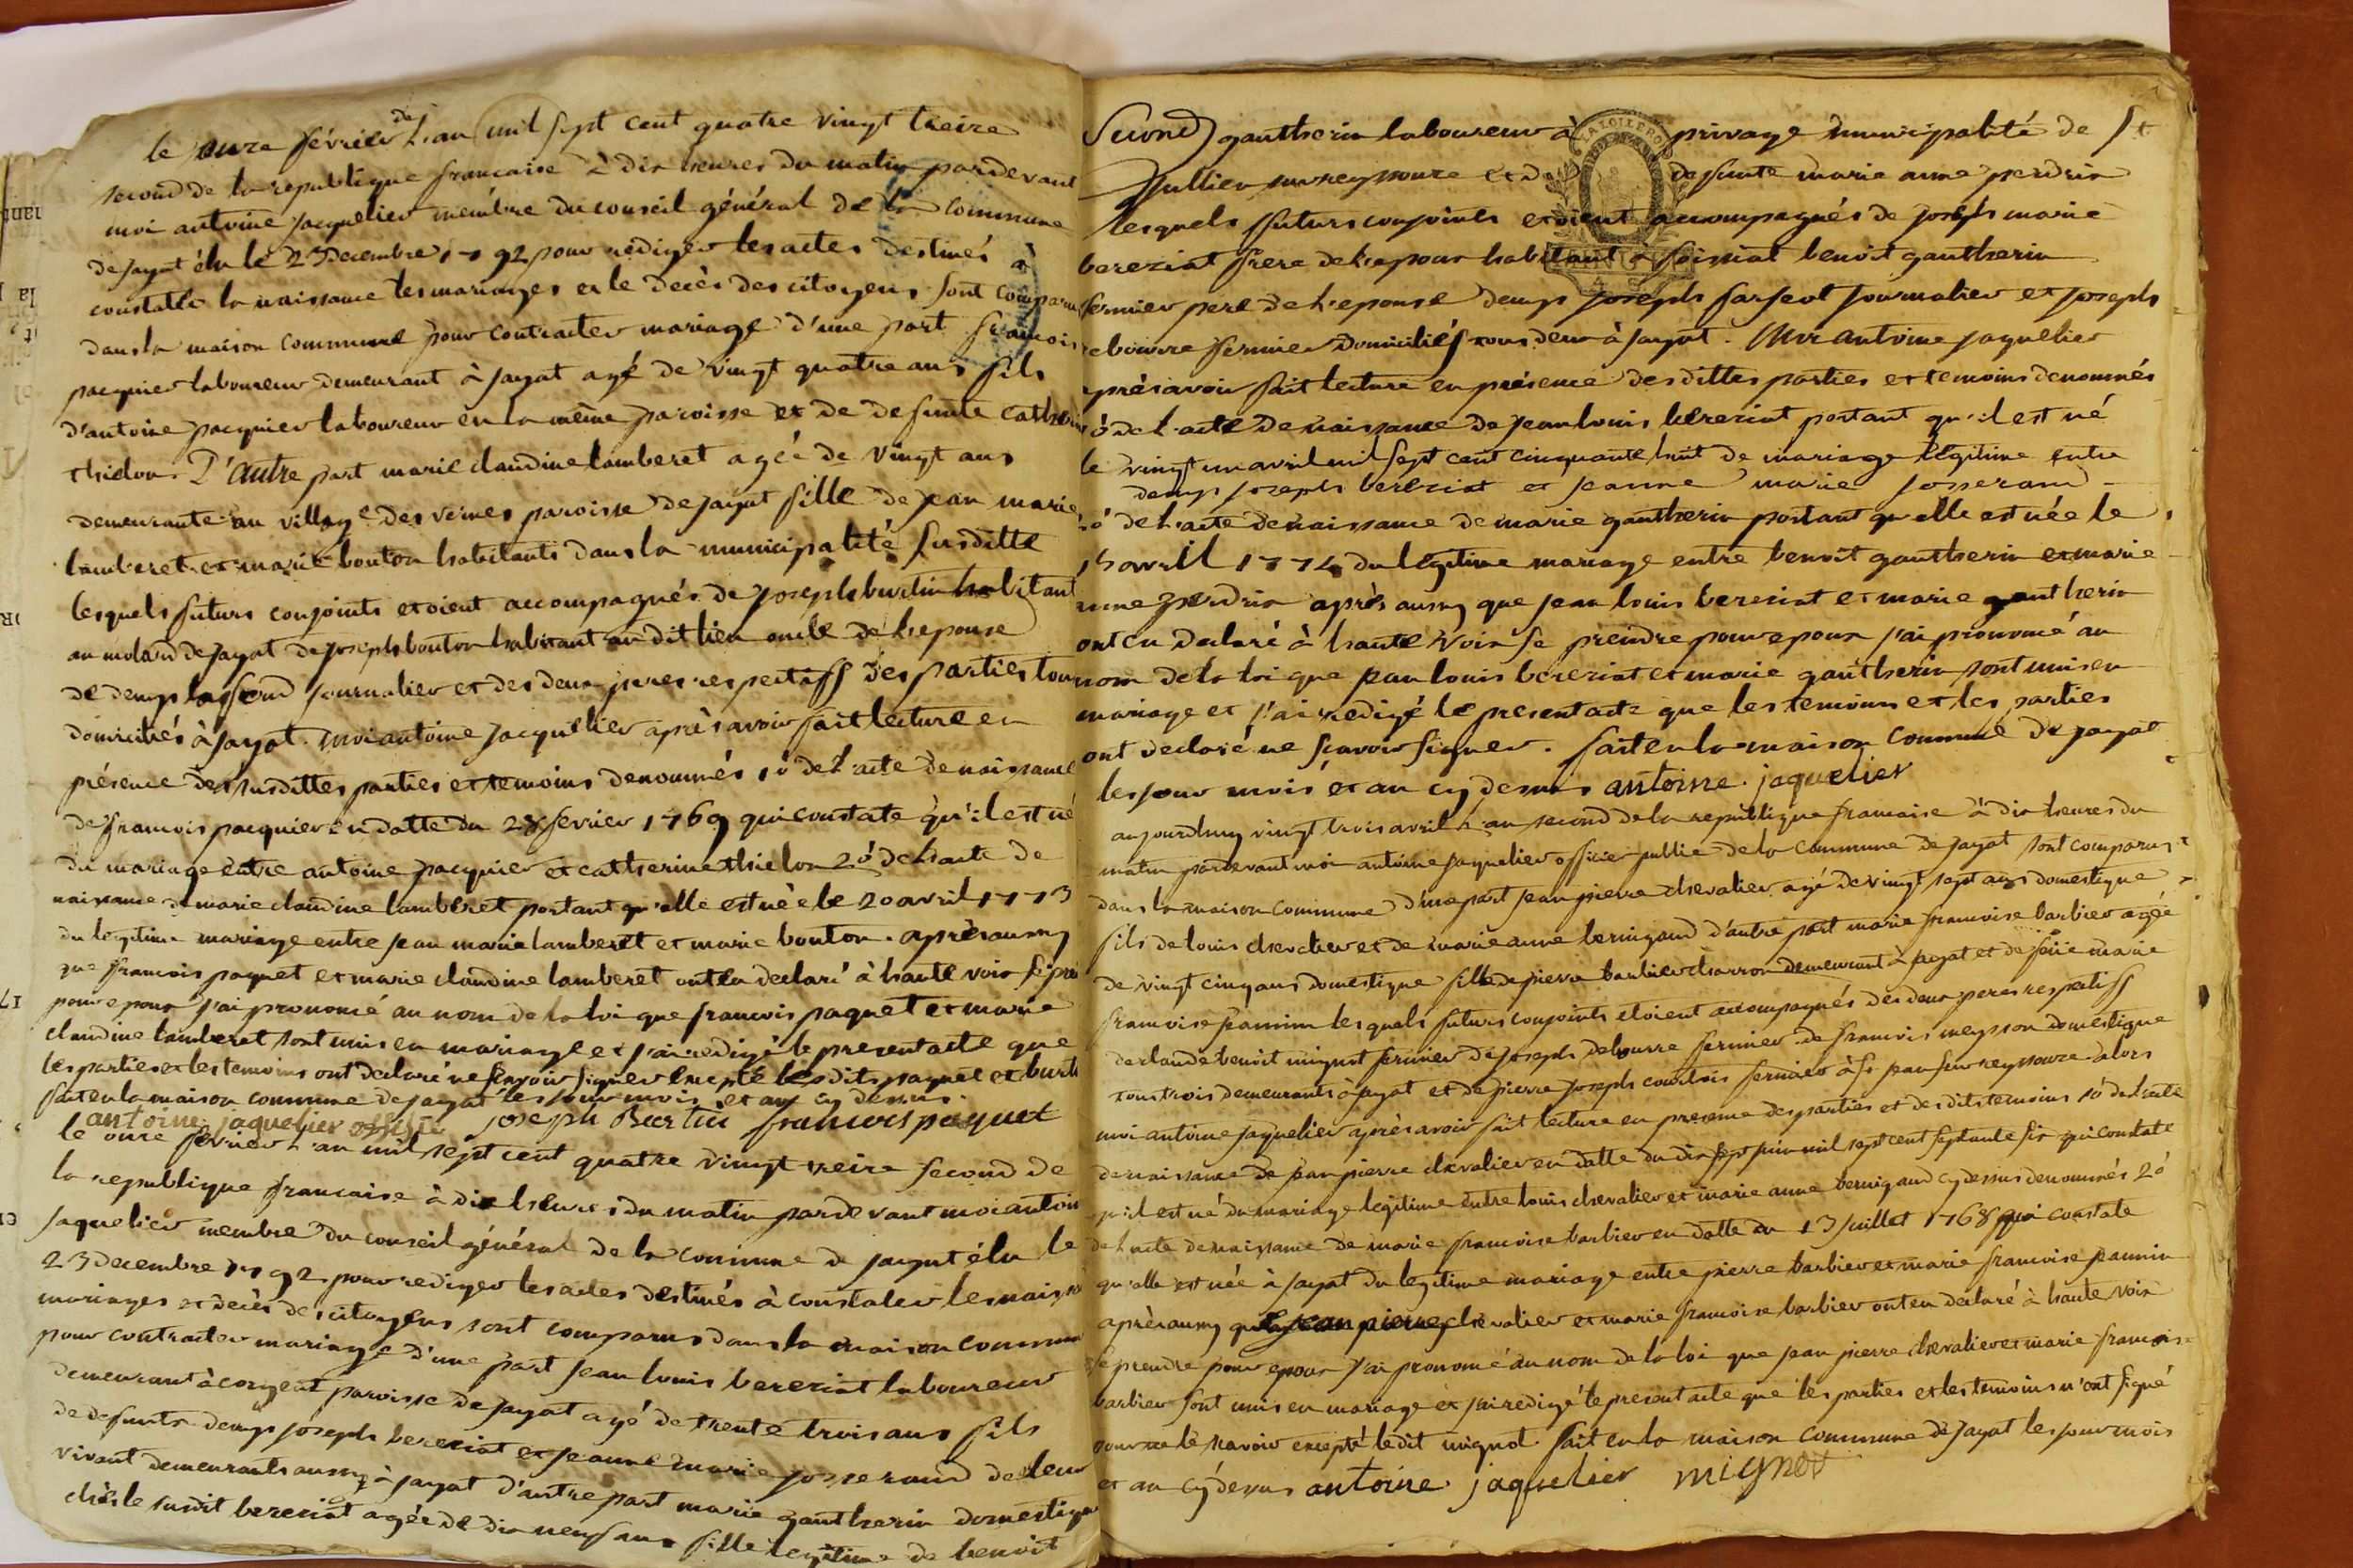 le onze février de l'an mil sept cent quatre vingt treize
second de la republique francaise à dix heures du matin pardevant
moi antoine jacquelier membre du conseil général de la commune
de jayat élu le 23 decembre 1792 pour rediger les actes destinés à
constater la naissance les mariages et le decès des citoyens sont comparu
dans la maison commune pour contracter mariage d'une part francois
pacquier laboureur demeurant à jayat agé de vingt quatre ans fils
d'antoine pacquier laboureur en la même paroisse et de defunte catherine
thielon. D'autre part marie claudine lamberet agée de vingt ans
demeurante au village des vernes paroisse de jayat fille de jean marie
lamberet et marie bouton habitants dans la municipalité susditte
lesquels futurs conjoints etoient accompagnés de joseph burtin habitant
au molard de jayat de joseph bouton habitant au dit lieu oncle de l'epouse
de denys journalier et des deux peres respectiff des parties tous
domiciliés à jayat. moi antoine jacquelier après avoir fait lecture en
présence des susdittes parties et temoins denommés 1o de l'acte de naissance
de francois pacquier en datte du 28 fevrier 1769 qui constate qu'il est né
du mariage entre antoine pacquier et catherine thielon 2o de l'acte de
naissance de marie claudine lamberet portant qu'elle est née le 20 avril 1773
du legitime mariage entre jean marie lamberet et marie bouton. après aussy
que francois paquet et marie claudine lamberet ont eu declaré à haute voix se pren
pour epoux j'ai prononcé au nom de la loi que francois paquet et marie
claudine lamberet sont unis en mariage et j'ai redigé le present acte que
les parties et les temoins ont declaré ne scavoir signer excepté les dits paquet et burti
fait en la maison commune de jayat les jour mois et an cy dessus.
antoine jaquelier joseph Burtin francois paquet
le onze février l'an mil sept cent quatre vingt treize second de
la republique francaise à dix heures du matin pardevant moi antoin
jaquelier membre du conseil général de la commune de jayat élu le
23 decembre 1792 pour rediger les actes destinés à constater les naiss
mariages et decès des citoyens sont comparus dans la maison commun
pour contracter mariage d'une part jean louis bereziat laboureur
demeurant à corgent paroisse de jayat agé de trente trois ans fils
de defunts denys joseph bereziat et jeanne marie josserand de leur
vivant demeurants aussy à jayat d'autre part marie gautherin domestique
chès le susdit bereziat agée de dix neuf ans fille legitime de benoit
Second gautherin laboureur à privage municipalité de St
jullien sur reyssouze et de defunte marie anne perdrix
lesquels futurs conjoints etoient accompagnés de joseph marie
bereziat frere de l'epoux habitant à foissiat benoit gautherin
fermier pere de l'epouse denys joseph journalier et joseph
debourre fermier domiciliés tous deux à jayat. Moi antoine jaquelier
après avoir fait lecture en présence desdittes parties et temoins denommés
1o de l'acte de naissance de jean louis bereziat portant qu'il est né
le vingt un avril mil sept cent cinquante huit de mariage légitime entre
denys joseph bereziat et jeanne marie josserand
2o de l'acte de naissance de marie gautherin portant qu'elle est née le
15 avril 1774 du légitime mariage entre benoit gautherin et marie
anne perdrix après aussy que jean louis bereziat et marie gautherin
ont eu declaré à haute voix se prendre pour epoux j'ai prononcé au
nom de la loi que jean louis bereziat et marie gautherin sont unis en
mariage et j'ai redigé le present acte que les temoins et les parties
ont declaré ne scavoir signer. fait en la maison commune de jayat
les jour mois et an cy dessus antoine jaquelier
aujourdhuy vingt trois avril l'an second de la republique francaise à dix heures du
matin pardevant moi antoine jaquelier officier public de la commune de jayat sont comparus
dans la maison commune d'une part jean pierre chevalier agé de vingt sept ans domestique
fils de louis chevalier et de marie anne bernigaud d'autre part marie francoise barbier agée
de vingt cinq ans domestique fille de pierre barbier charron demeurant à jayat et de feüe marie
francoise jeannin lesquels futurs conjoints etoient accompagnés des deux peres respectiff
de claude benoit mignot fermier de joseph debourre fermier de francois meysson domestique
tous trois demeurants à jayat et de pierre joseph courtois fermier à st jean sur reyssouze alors
moi antoine jaquelier après avoir fait lecture en presence des parties et desdits temoins 1o de l'acte
de naissance de jean pierre chevalier en datte du dix sept juin mil sept cent septante six qui constate
qu'il est né du mariage legitime entre louis chevalier et marie anne bernigaud cy dessus denommés 2o
de l'acte de naissance de marie francoise barbier en datte du 13 juillet 1768 qui constate
qu'elle est née à jayat du legitime mariage entre pierre barbier et marie francoise jeannin
après aussy que jean pierre chevalier et marie francoise barbier ont eu declaré à haute voix
se prendre pour epoux j'ai prononcé au nom de la loi que jean pierre chevalier et marie francoise
barbier sont unis en mariage et j'ai redigé le present acte que les parties et les temoins n'ont signé
pour ne le scavoir excepté ledit mignot. fait en la maison commune de jayat les jour mois
et an cy dessus antoine jaquelier mignot